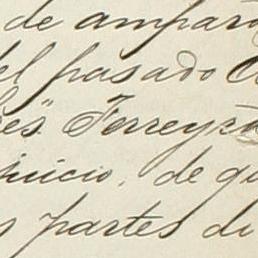 de amparo
el pasado
és. Ferreyra
juicio, de qu
s partes di